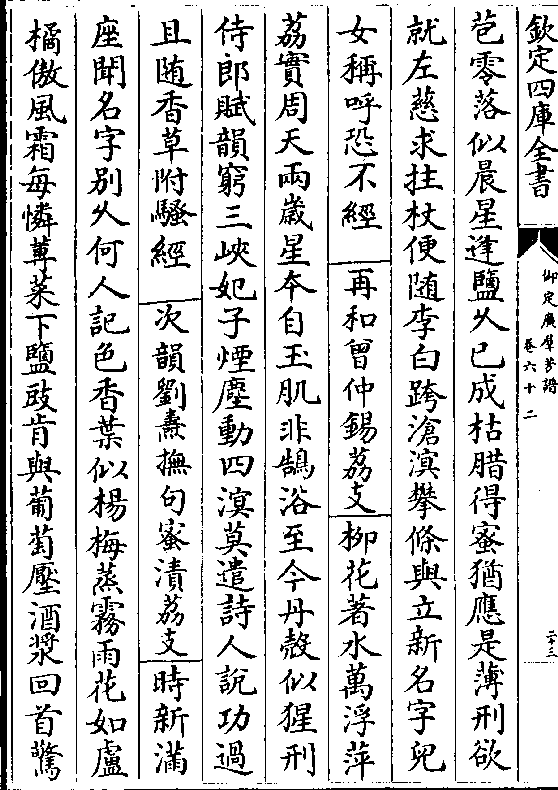 欽定四庫全書
御定廣羣芳譜
卷六十二
二十三
苞零落似晨星逢鹽久已成枯腊得蜜猶應是薄刑欲
就左慈求拄杖便随李白跨滄溟攀條與立新名字兒
女稱呼恐不經 再和曾仲錫荔支 栁花著水萬浮萍
荔實周天兩歲星夲自玉肌非鵠浴至今丹殼似猩刑
侍郎賦韻窮三峽妃子煙塵動四溟莫遣詩人說功過
且随香草附騷經 次韻劉燾撫句蜜漬荔支 時新滿
座聞名字别久何人記色香葉似楊梅蒸霧雨花如盧
橘傲風霜每憐蓴菜下鹽豉肯與葡萄壓酒漿回首驚